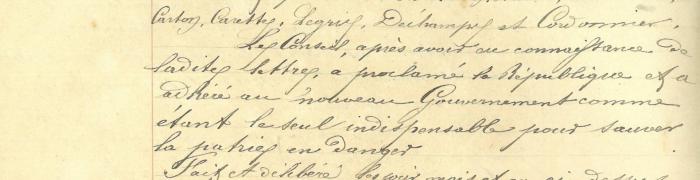 Carton, Carette, Legris, Dechamps et Cordonnier.
Le Conseil, après avoir eu connaissance de
ladite lettre, a proclamé la République et a
adhéré au nouveau Gouvernement comme
étant le seul indispensable pour sauver
la patrie en danger
Fait et délibéré les jour, mois et an ci-dessus